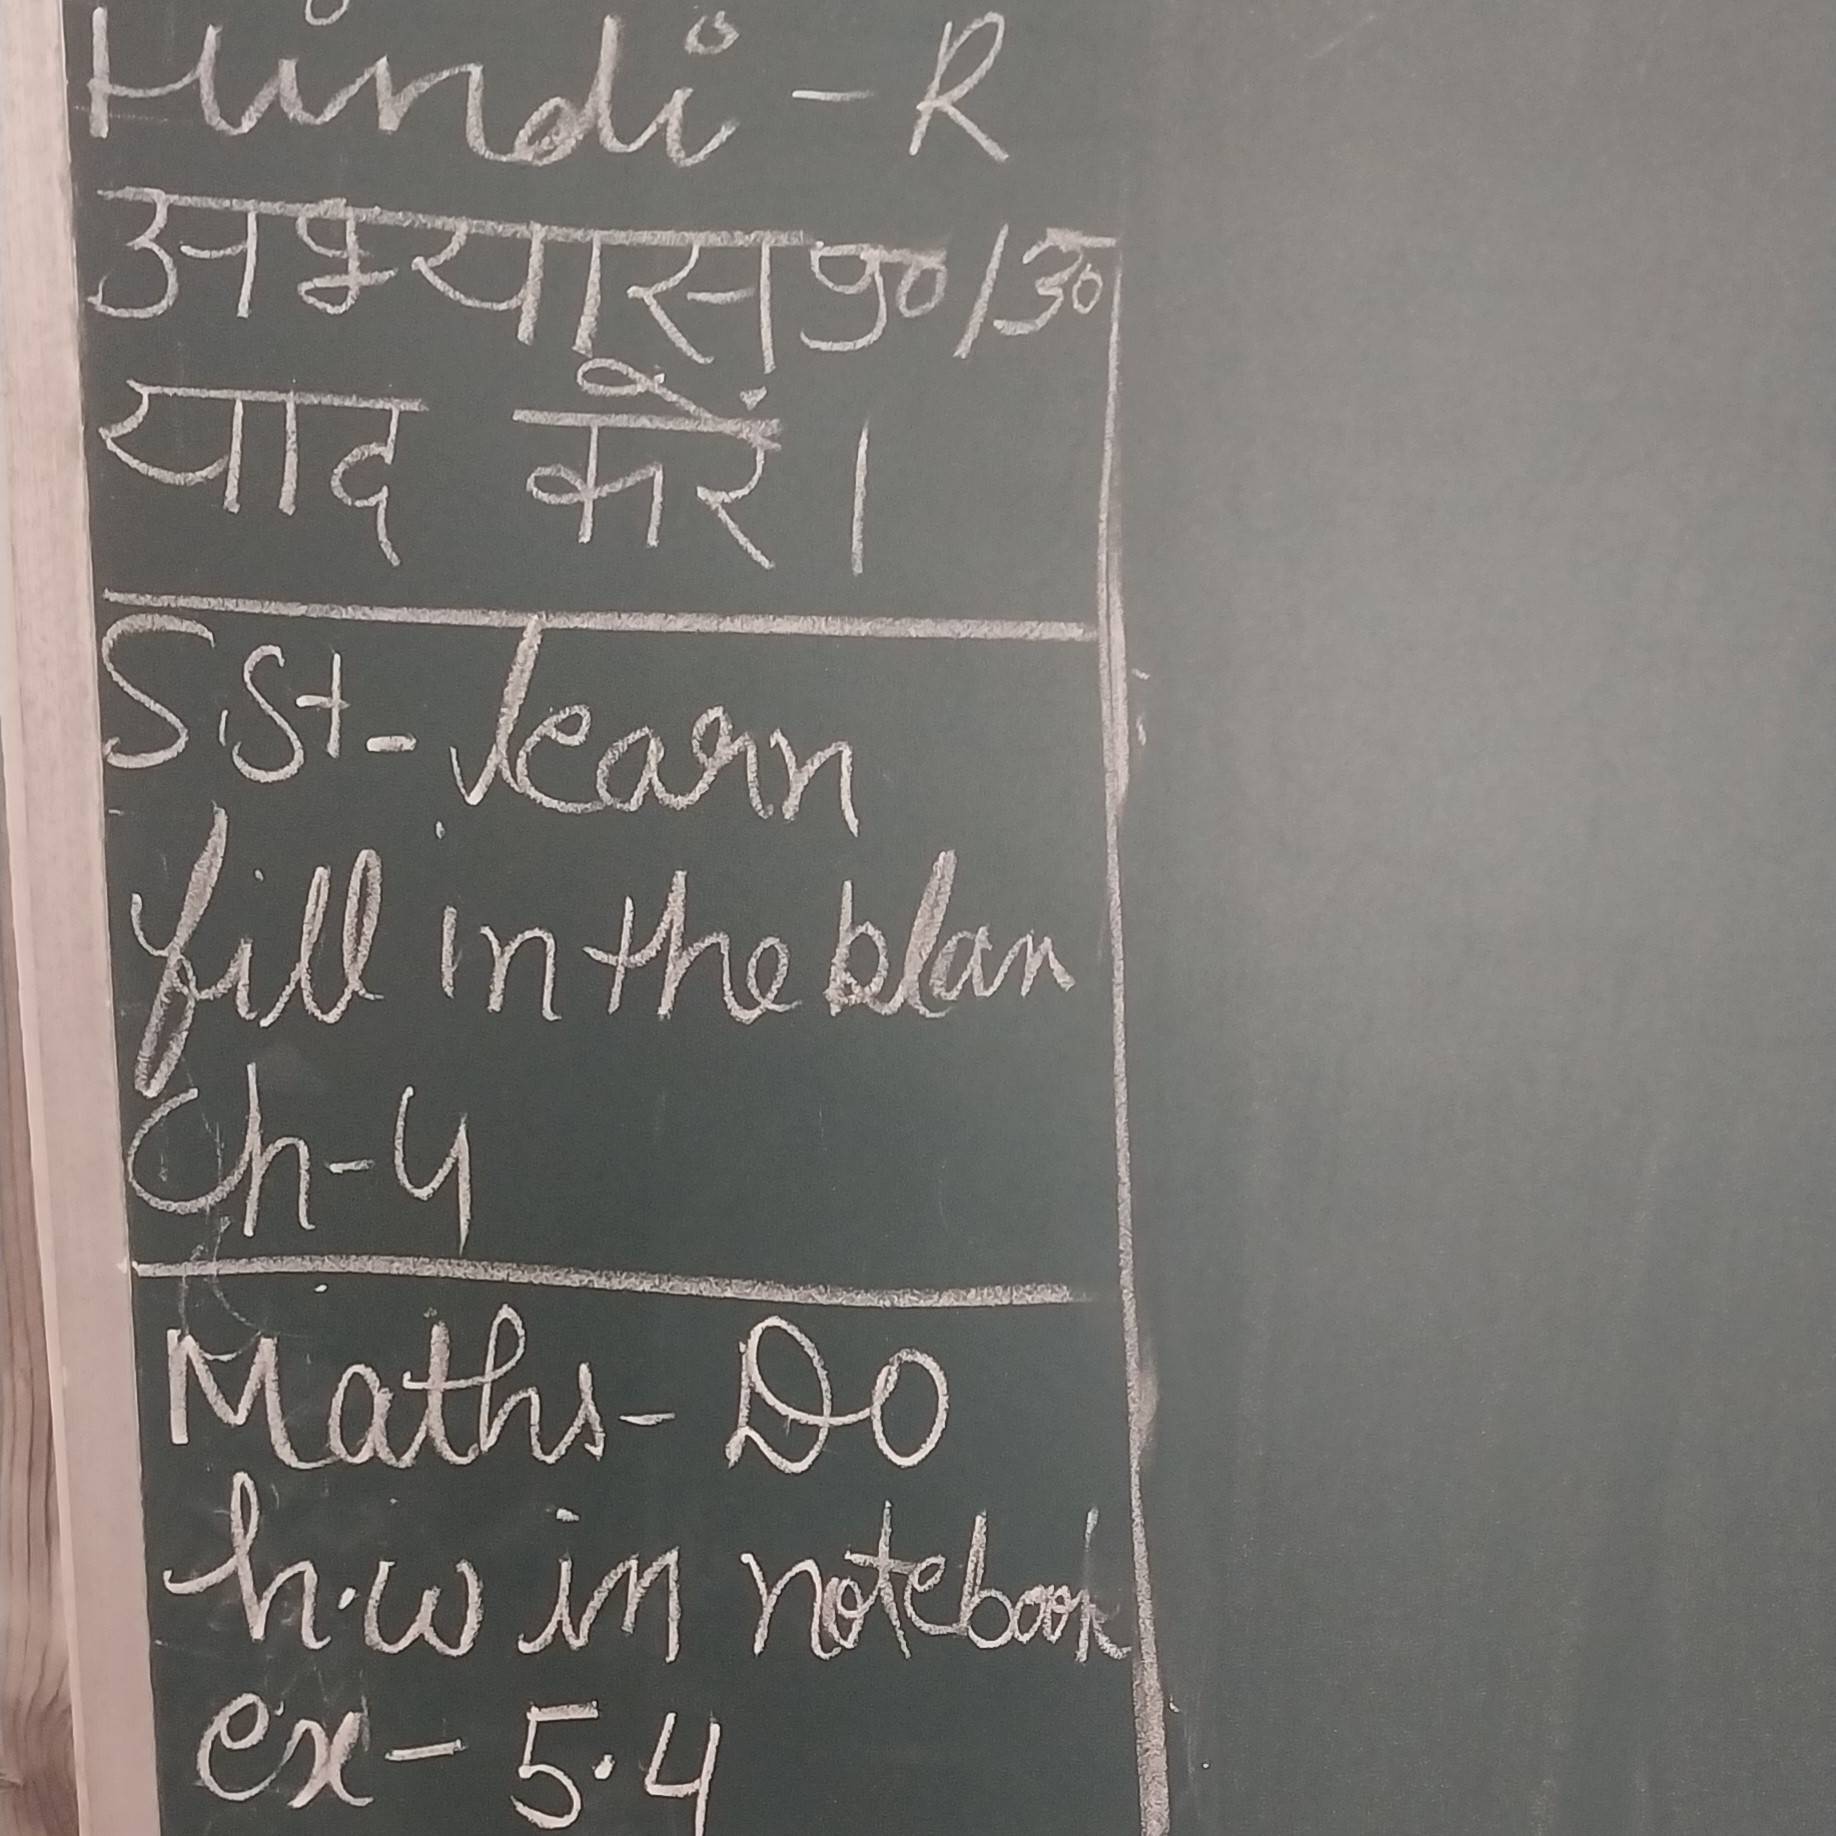 Hindi - R
अभ्यास प्र०/उ०
याद करें।
S.St - learn
fill in the blan
Ch-4
Maths - Do
h.w in notebook
ex - 5.4